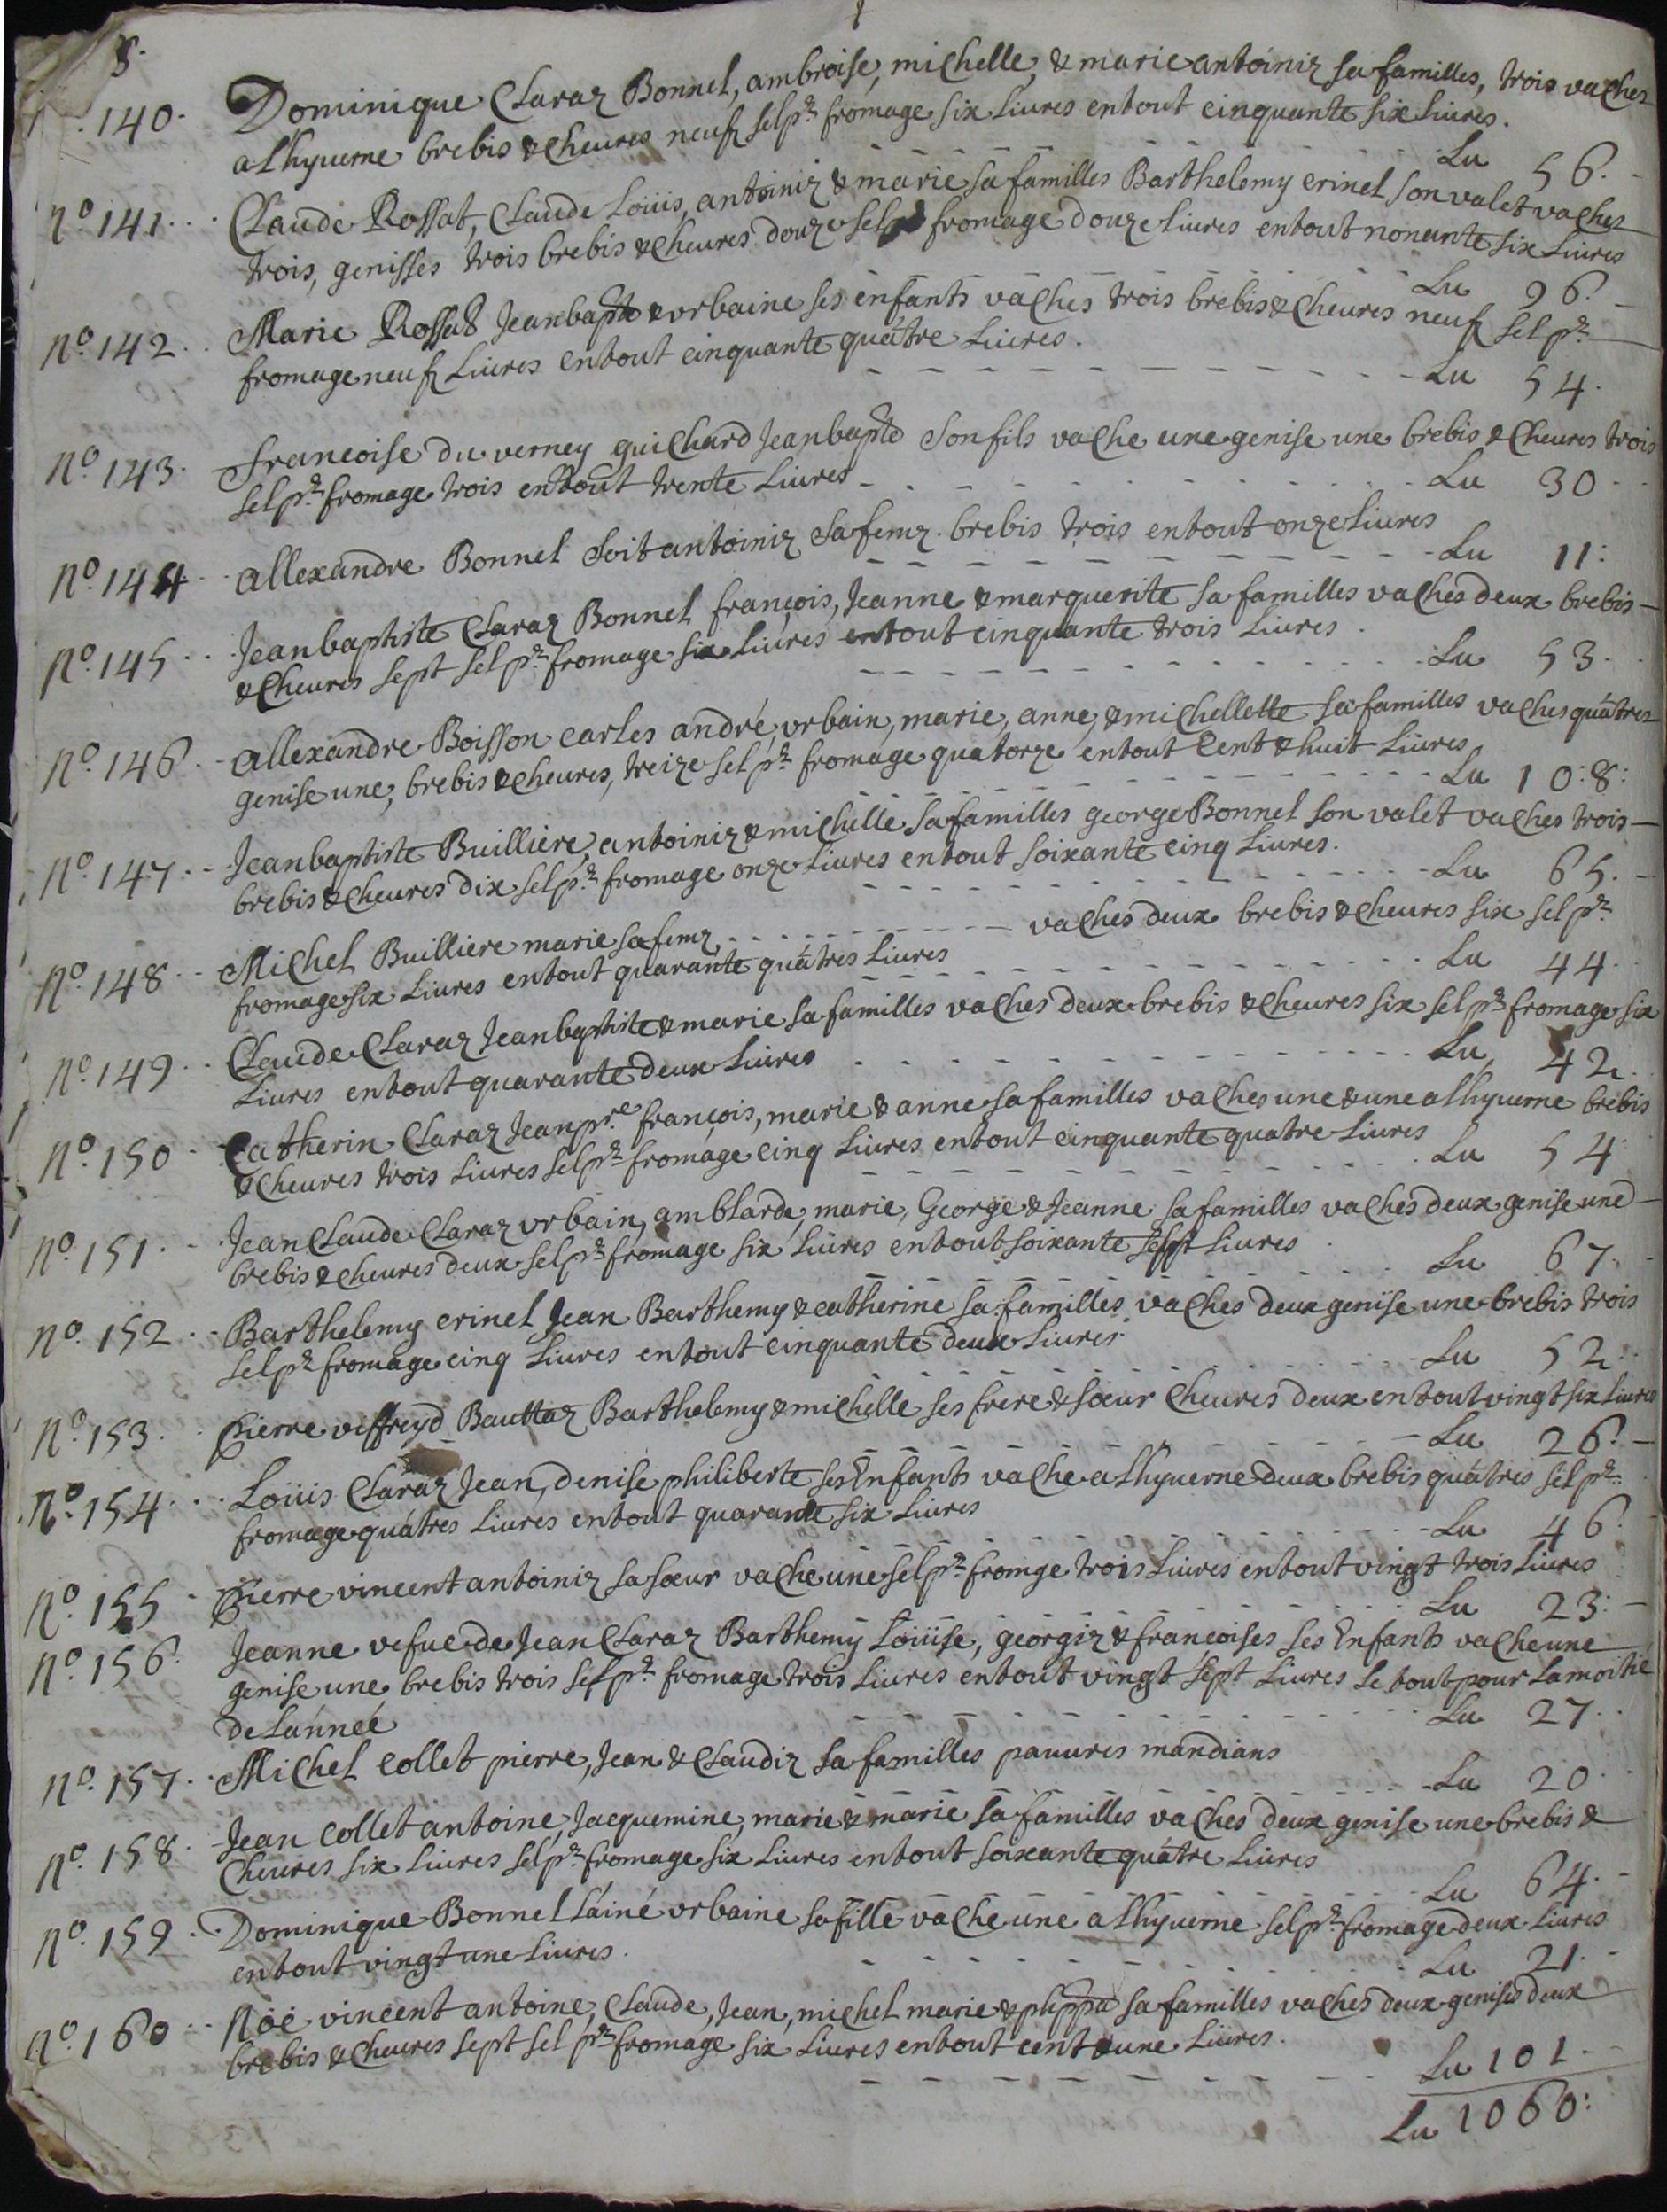 8.
140. Dominique Claraz Bonnel, ambroise, michelle, & marie antoiniz sa familles, trois vaches
a Lhyuerne brebis & cheures neuf sel pr. fromage six Liures entout cinquante six Liures.
Lu 56.
No. 141. Claude Rossat, Claude Loüis, antoiniz & marie sa familles Barthelemy crinel son valet vaches
trois, genisses trois brebis & cheures douze sel pr. fromage douze Liures entout nonante six Liures
Lu 96.
No. 142. Marie Rossat Jeanbapte & vrbaine ses enfants vaches trois brebis & cheures neuf sel pr.
fromage neuf Liures entout cinquante quátre Liures.
Lu 54.
No. 143. francoise du verney guichard Jeanbapte son fils vache une genise une brebis & cheures trois
sel pr. fromage trois entout trente Liures
Lu 30.
No. 144. allexandre Bonnel soit antoiniz sa femz. brebis trois entout onze Liures
Lu 11:
No. 145. Jeanbaptiste Claraz Bonnel françois, Jeanne & marguerite sa familles vaches deux brebis
& cheures sept sel pr. fromage six Liures entout cinquante trois Liures.
Lu 53.
No. 146. allexandre Boisson carles andré, vrbain, marie, anne, & michellette sa familles vaches quátres
genise une, brebis & cheures, treize sel pr. fromage quatorze entout Cent & huit Liures
Lu 10:8:
No. 147. Jeanbaptiste Builliere, antoiniz & michelle sa familles george Bonnel son valet vaches trois
brebis & cheures dix sel pr. fromage onze Liures entout soixante cinq Liures.
Lu 65.
No. 148. Michel Builliere marie sa femz vaches deux brebis & cheures six sel pr.
fromage six Liures entout quarante quátres Liures
Lu 44.
No. 149. Claude Claraz Jeanbaptiste & marie sa familles vaches deux brebis & cheures six sel pr. fromage six
Liures entout quarante deux Liures
Lu 42.
No. 150. Catherin Claraz Jeanpre. françois, marie & anne sa familles vaches une & une a Lhyuerne brebis
& cheures trois Liures sel pr. fromage cinq Liures entout cinquante quatre Liures
Lu 54
No. 151. Jean Claude Claraz vrbain, amblarde, marie, George & Jeanne sa familles vaches deux genise une
brebis & cheures deux sel pr. fromage six Liures entout soixante sept Liures
Lu 67.
No. 152. Barthelemy crinel Jean Barthemy & catherine sa familles vaches deux genise une brebis trois
sel pr. fromage cinq Liures entout cinquante deux Liures
Lu 52.
No. 153. Pierre veffreyd Bauttaz Barthelemy & michelle ses frere & sœur Cheures deux entout vingt six Liures
Lu 26.
No. 154. Loüis Claraz Jean, denise philiberte ses Enfants vache a Lhyuerne deux brebis quátres sel pr.
fromage quátres Liures entout quarante six Liures
Lu 46.
No. 155. Pierre vincent antoiniz sa sœur vache une sel pr. fromge trois Liures entout vingt trois Liures
Lu 23:
No. 156. Jeanne vefue de Jean Claraz Barthemy Loüise, georgiz & francoises ses Enfants vache une
genise une brebis trois sel pr. fromage trois Liures entout vingt sept Liures Le tout pour La moitié
de Lánneé
Lu 27.
No. 157. Michel collet pierre, Jean & Claudiz sa familles pauures mandians
Lu 20.
No. 158. Jean collet antoine, Jacquemine, marie & marie sa familles vaches deux genise une brebis &
Cheures six Liures sel pr. fromage six Liures entout soixante quátre Liures
Lu 64.
No. 159. Dominique Bonnel Láiné vrbaine sa fille vache une a Lhyuerne sel pr. fromage deux Liures
entout vingt une Liures.
Lu 21.
No. 160. Noë vincent antoine, Claude, Jean, michel marie & phppa sa familles vaches deux genises deux
brebis & cheures sept sel pr. fromage six Liures entout cent & une Liures.
Lu 101.
Lu 1060: